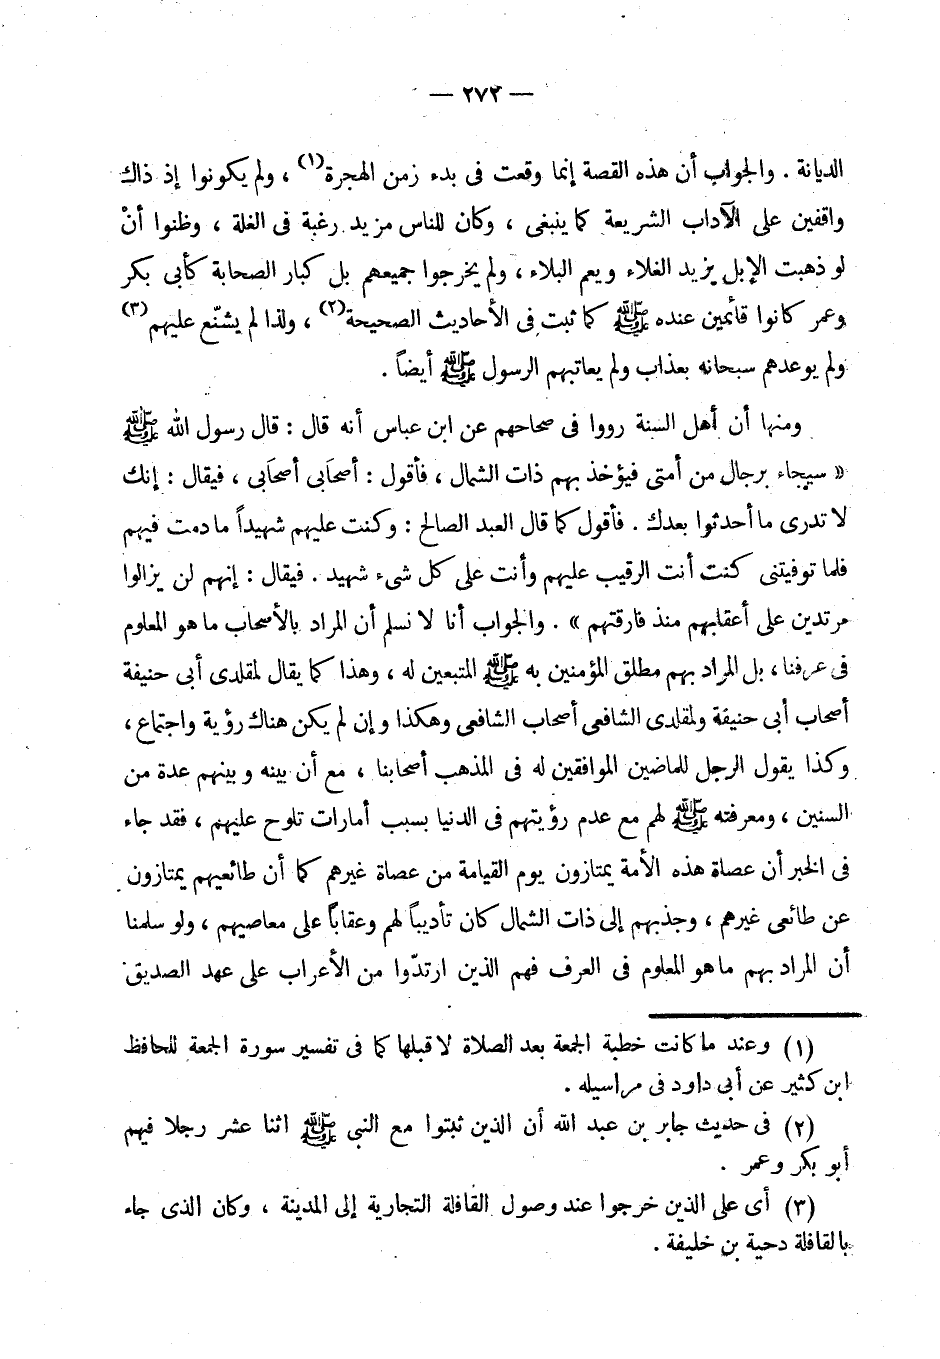 — ٢٧٢ —
الديانة . والجواب أن هذه القصة إنما وقعت فى بدء زمن الهجرة(١) ، ولم يكونوا إذ ذاك
واقفين على الآداب الشريعة كما ينبغى ، وكان للناس مزيد رغبة فى الغلة ، وظنوا أنْ
لو ذهبت الإبل يزيد الغلاء ويعم البلاء ، ولم يخرجوا جميعهم بل كبار الصحابة كأبى بكر
وعمر كانوا قائمين عنده ﷺ كما ثبت فى الأحاديث الصحيحة(٢) ، ولذا لم يشنّع عليهم(٣)
ولم يوعدهم سبحانه بعذاب ولم يعاتبهم الرسول ﷺ أيضاً .
ومنها أن أهل السنة رووا فى صحاحهم عن ابن عباس أنه قال : قال رسول الله ﷺ
« سيجاء برجال من أمتى فيؤخذ بهم ذات الشمال ، فأقول : أصحَابى أصحَابى ، فيقال : إنك
لا تدرى ما أحدثوا بعدك . فأقول كما قال العبد الصالح : وكنت عليهم شهيداً ما دمت فيهم
فلما توفيتنى كنت أنت الرقيب عليهم وأنت على كل شىء شهيد . فيقال : إنهم لن يزالوا
مرتدين على أعقابهم منذ فارقتهم » . والجواب أنا لا نسلم أن المراد بالأصحاب ما هو المعلوم
فى عرفنا ، بل المراد بهم مطلق المؤمنين به ﷺ المتبعين له ، وهذا كما يقال لمقلدى أبى حنيفة
أصحاب أبى حنيفة ولمقلدى الشافعى أصحاب الشافعى وهكذا وإن لم يكن هناك رؤية واجتماع ،
وكذا يقول الرجل للماضين الموافقين له فى المذهب أصحابنا ، مع أن بينه وبينهم عدة من
السنين ، ومعرفته ﷺ لهم مع عدم رؤيتهم فى الدنيا بسبب أمارات تلوح عليهم ، فقد جاء
فى الخبر أن عصاة هذه الأمة يمتازون يوم القيامة من عصاة غيرهم كما أن طائعيهم يمتازون
عن طائعى غيرهم ، وجذبهم إلى ذات الشمال كان تأديباً لهم وعقاباً على معاصيهم ، ولو سلمنا
أن المراد بهم ما هو المعلوم فى العرف فهم الذين ارتدّوا من الأعراب على عهد الصديق
(١) وعند ما كانت خطبة الجمعة بعد الصلاة لا قبلها كما فى تفسير سورة الجمعة للحافظ
ابن كثير عن أبى داود فى مراسيله .
(٢) فى حديث جابر بن عبد الله أن الذين ثبتوا مع النبى ﷺ اثنا عشر رجلا فيهم
أبو بكر وعمر .
(٣) أى على الذين خرجوا عند وصول القافلة التجارية إلى المدينة ، وكان الذى جاء
بالقافلة دحية بن خليفة .